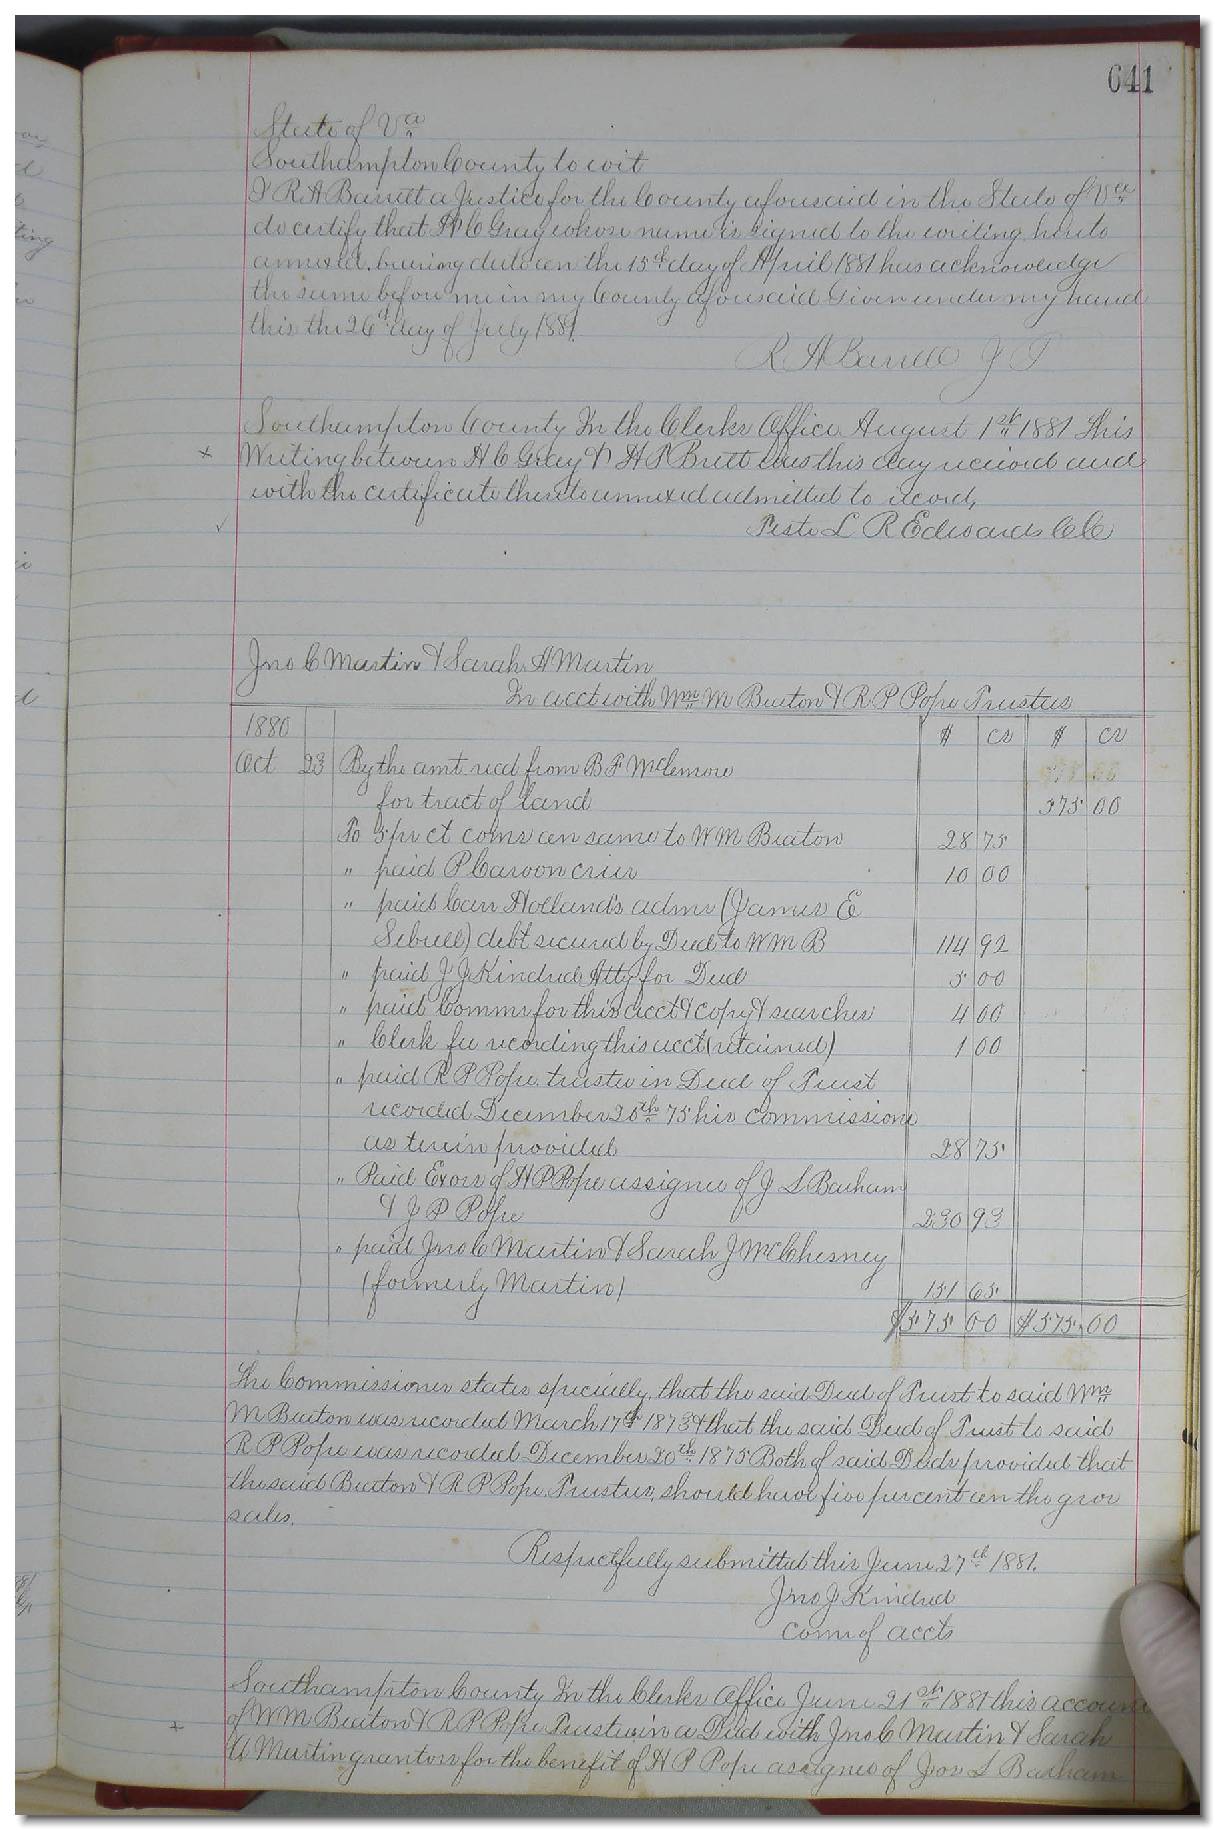 641
State of Va
Southampton County to wit
I R A Barrett a Justice for the County aforesaid in the State of Va
do certify that H C Gray whose name is signed to the writing hereto
annexed, bearing date on the 15th day of April 1881 has acknowledge
the same before me in my County aforesaid Given under my hand
this the 26th day of July 1881.
R A Barrett J P
Southampton County In the Clerks Office August 1st 1881 This
Writing between H C Gray & H P Britt was this day received and
with the certificate thereto annexed admitted to record,
Teste L R Edwards CC
Jno C Martin & Sarah A Martin
In acct with Wm M Beaton & R P Pope Trustees
1880 $ cs $ cs
Oct 23 By the amt recd from B F McLemore
for tract of land 575 00
To 5 pr ct coms on same to W M Beaton 28 75
" paid P Caroon crier 10 00
" paid Carr Holland's admr (James E
Sebrell) debt secured by Deed to W M B 114 92
" paid J J Kindred Atty for Deed 5 00
" paid Commr for this acct & copy & searches 4 00
" Clerk fee recording this acct (retained) 1 00
" paid R P Pope trustee in Deed of Trust
recorded December 20th 75 his commissions
as terein provided 28 75
" Paid Exors of H P Pope assignee of J L Barham
& J P Pope 230 93
" paid Jno C Martin & Sarah J McChesney
(formerly Martin) 151 65
$575 00 $575.00
The Commissioner states specially, that the said Deed of Trust to said Wm
M Beaton was recorded March 17th 1873 & that the said Deed of Trust to said
R P Pope was recorded December 20th 1875 Both of said Deeds provided that
the said Beaton & R P Pope Trustees, should have five percent on the gross
sales.
Respectfully submitted this June 27th 1881.
Jno J Kindred
Comr of accts
Southampton County In the Clerks Office June 21st 1881 this account
of W M Beaton & R P Pope Trustees in a Deed with Jno C Martin & Sarah
A Martin grantors for the benefit of H P Pope assignee of Jos L Barham